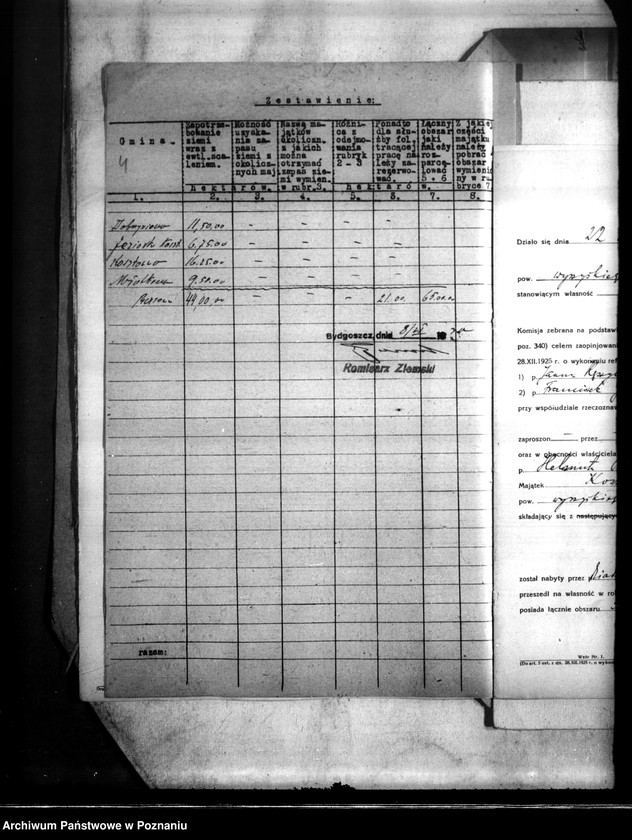 Zestawienie:
Gmina.
4
Zapotrze-
bowanie
ziemi
wraz z
ewtl.sca-
leniem.
Możność
uzyska-
nia za-
pasu
ziemi z
okolicz-
nych maj.
Nazwa ma-
jątków
okoliczn.
z jakich
można
otrzymać
zapas zie-
mi wymien.
w rubr.3.
Różni-
ca z
odejmo-
wania
rubryk
2 - 3
Ponadto
dla słu-
żby fol.
tracącej
pracę na-
leży za-
rezerwo-
wać.
Łączny
obszar
jaki
należy
roz-
parce-
lować
5 + 6
Z jakiej
części
majątku
należy
pobrać
obszar
wymienio-
ny w ru-
bryce 7
hektarów.
hektarów.
1. 2. 3. 4. 5. 6. 7. 8.
11,50.00 - - - -
6.75.00 - - - -
Kosztowo 16.25.00 - - - -
9.50.00 - - - -
Razem 44,00.00 - - 21.00. 65.00.00
Bydgoszcz, dnia
Komisarz Ziemski
razem:
Działo się dnia 22
pow. wyrzyskieg
stanowiącym własność
Komisja zebrana na podstaw
poz. 340) celem zaopinjowan
28.XII.1925 r. o wykonaniu ref
1) p.
2) p. Franciszek
przy współudziale rzeczozna
zaproszon — przez
oraz w obecności właściciela
p. Helmut
Majątek Kos
pow. wyrzyskieg
składający się z następujący
został nabyty przez
przeszedł na własność w ro
posiada łącznie obszaru
Wzór Nr. 1.
(Do art. 5 ust. z dn. 28.XII.1925 r. o wykon
Archiwum Państwowe w Poznaniu